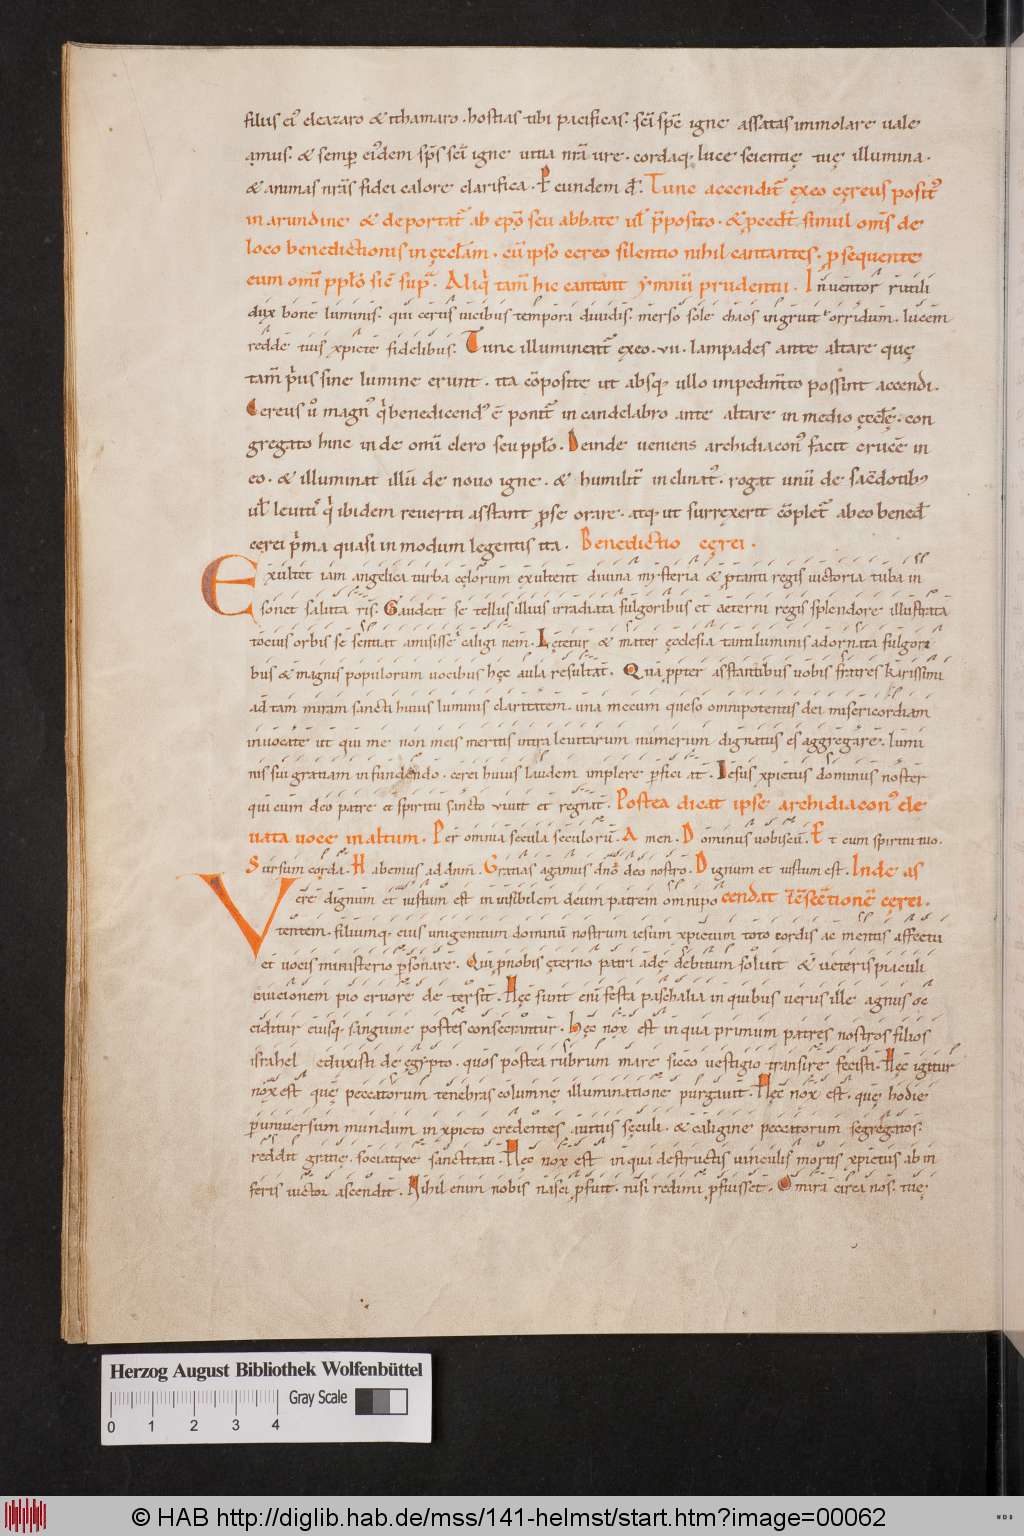 filiis ei᷒ eleazaro & ithamaro . hostias tibi pacificas . sc̄i sp̄c igne assatas immolare uale
amus . & semp̱ ei᷒dem sp̄s sc̄i igne uitia nr̄a ure . cordaq; luce scientię tuę illumina .
& animas nr̄as fidei calore clarifica . P̱ eundem d̄ . Tunc accendit᷑ ęx eo cęreus posit᷒
in arundine & deportat᷑ ab ep̄o seu abbate ul̄ p̄posito . & p̱cedt̄ simul om̄s de
loco benedictionis in ęccl̄am . cū ipso cereo silentio nihil cantantes . p̱sequente
eum om̄i ppl̄o sic̄ supͣ . Aliqͥ tam̄ hic cantant ymnū prudentii . Inuentor rutili
dux bone luminis . qui certis uicibus tempora diuidis . merso sole chaos ingruit horridum . lucem
redde tuis xpicte fidelibus . Tunc illuminent᷑ ęx eo . vii . lampades ante altare quę
tam̄ pͥus sine lumine erunt . ita cōposite ut absq; ullo impedim̄to possint accendi .
Cereus u̇ magn᷒ qͥ benedicend᷒ ē ponit᷑ in candelabro ante altare in medio ęccl̄ę . con
gregato hinc inde om̄i clero seu ppl̄o . Deinde ueniens archidiacon᷒ facit crucē in
eo . & illuminat illū de nouo igne . & humilit̄ inclinat᷒ . rogat unū de sac̄dotib᷒
ul̄ leuitͥ qͥ ibidem reuerti asstant p̱ se orare . atq; ut surrexerit cōplet᷑ ab eo bened̄
cęrei pͥma quasi in modum legentis ita . Benedictio cęrei .
Exultet iam angelica turba cęlorum exultent diuina mysteria & p̱ tanti regis uictoria tuba in
sonet saluta ris . Gaudeat se tellus illius irradiata fulgoribus et aeterni regis splendore illustrata
tocius orbis se sentiat amisisse caligi nem . Lętetur & mater ęcclesia tanti luminis adornata fulgori
bus & magnis populorum uocibus hęc aula resultat . Qua p̱pter asstantibus uobis fratres karissimi
ad tam miram sancti huius luminis claritatem . una mecum queso omnipotentis dei misericordiam
inuocate ut qui me non meis meritis intra leuitarum numerum dignatus es aggregare . lumi
nis sui gratiam infundendo . cerei huius laudem implere p̱fici at . Iesus xpictus dominus noster
qui cum deo patre et spiritu sancto viuit et regnat . Postea dicat ipse archidiacon᷒ ele
uata uoce in altum . Per omnia secula seculorū . A men . Dominus uobiscū . Et cum spiritu tuo .
Sursum corda . Habemus ad dnm̄ . Gratias agamus dn̄o deo nostro . Dignum et iustum est . Inde as
Vere dignum et iustum est inuisibilem deum patrem omnipo cendat
tentem . filiumq; eius unigenitum dominū nostrum iesum xpictum toto cordis ac mentis affectu
et uocis ministerio p̱sonare . Qui p̱ nobis ęterno patri adę debitum soluit & ueteris piaculi
caucionem pio cruore de tersit . Hęc sunt enī festa paschalia in quibus uerus ille agnus oc
ciditur eiusq; sanguine postes consecrantur . Hęc nox est in qua primum patres nostros filios
israhel eduxisti de egypto . quos postea rubrum mare sicco vestigio transire fecisti . Hęc igitur
nox est quę peccatorum tenebras columnę illuminatione purgauit . Hęc nox est . quę hodie
p̱ uniuersum mundum in xpicto credentes a uitiis sęculi . & caligine peccatorum segregatos :
reddit gratię . sociatque sanctitati . Hęc nox est in qua destructis uinculis mortis xpictus ab in
feris uictor ascendit . Nihil enim nobis nasci p̱fuit . nisi redimi p̱fuisset . O mira circa nos . tuę
Herzog August Bibliothek Wolfenbüttel
Gray Scale
0 1 2 3 4
© HAB http://diglib.hab.de/mss/141-helmst/start.htm?image=00062